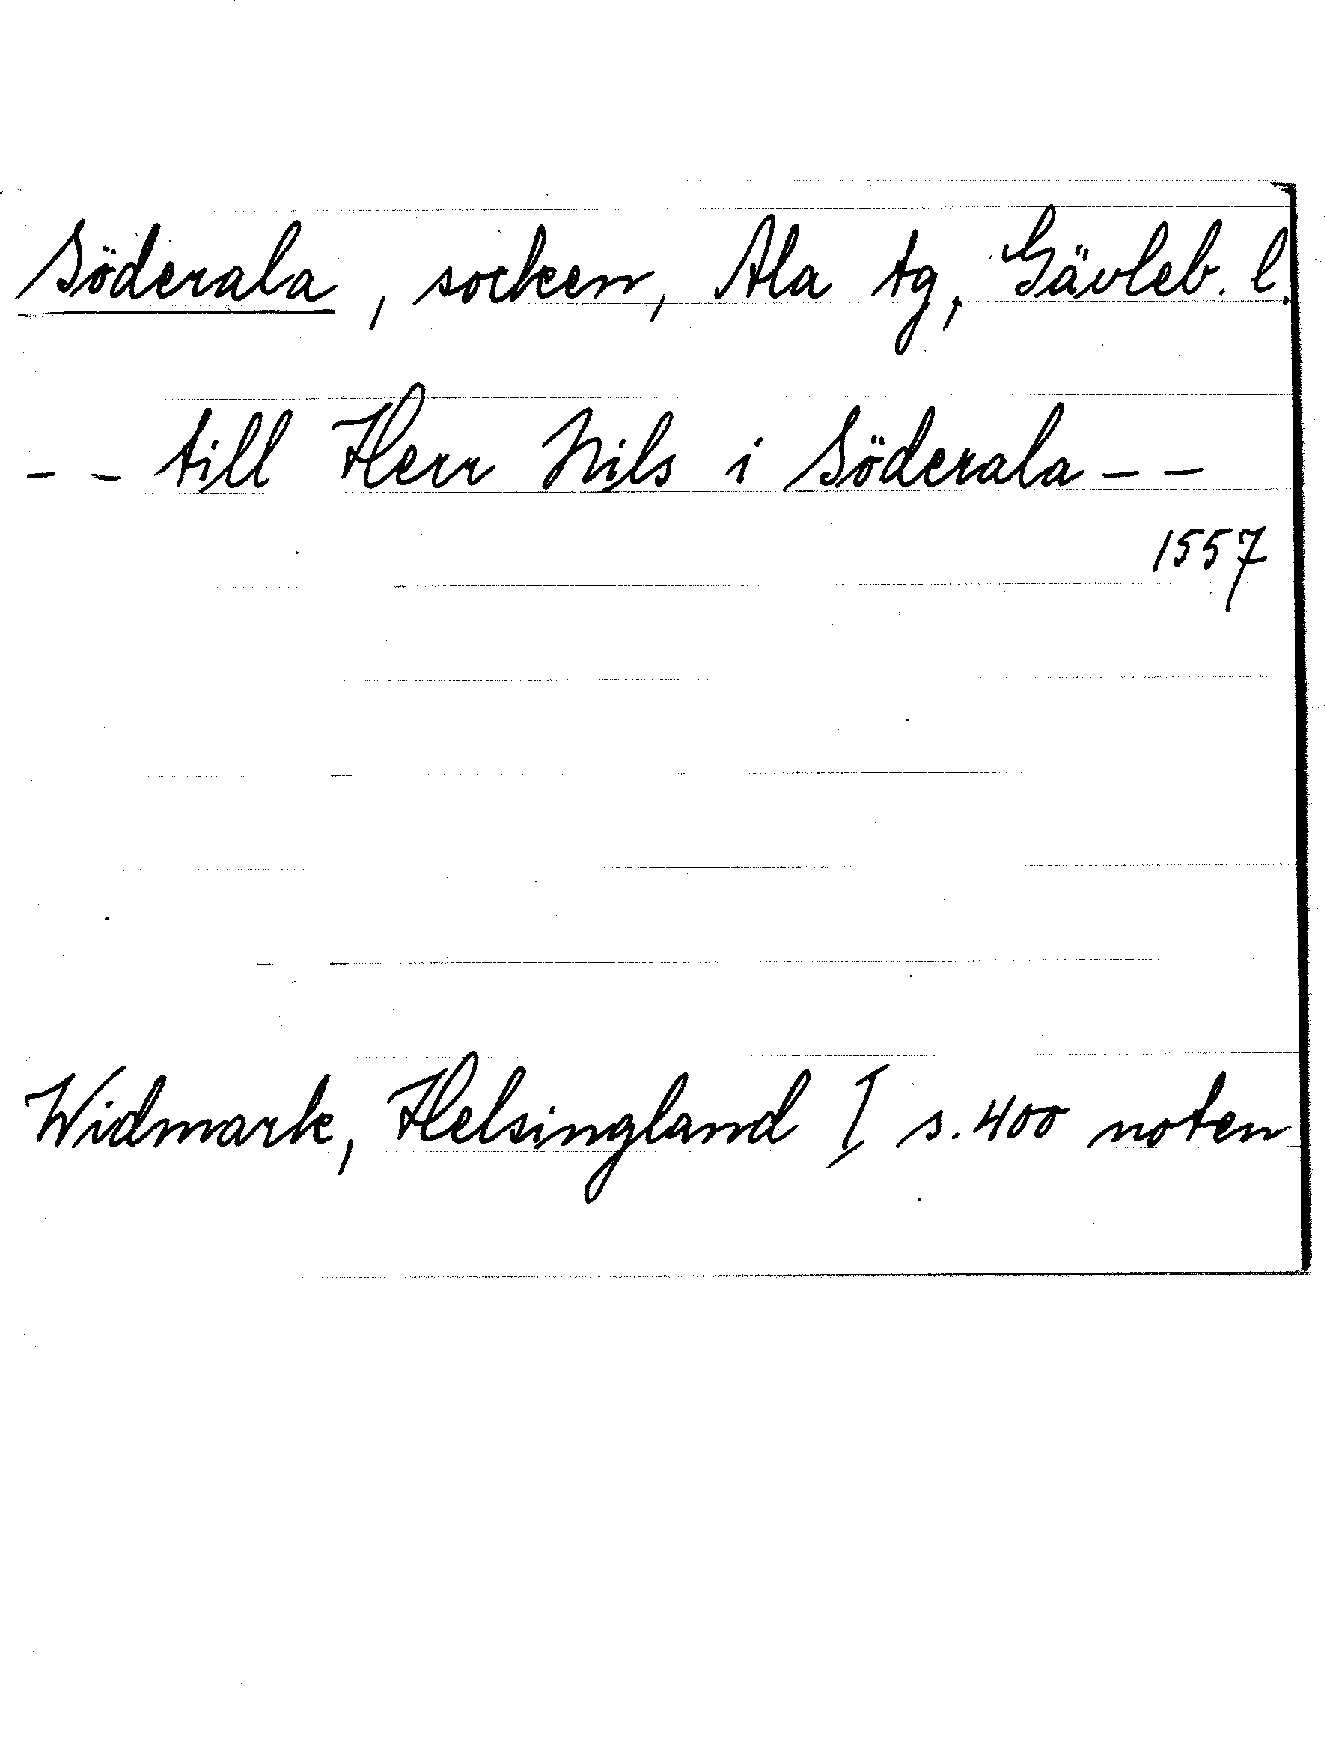 Söderala, socken, Ala tg, Gävleb. l.
-- till Herr Nils i Söderala --
1557
Widmark, Helsingland I s. 400 noten